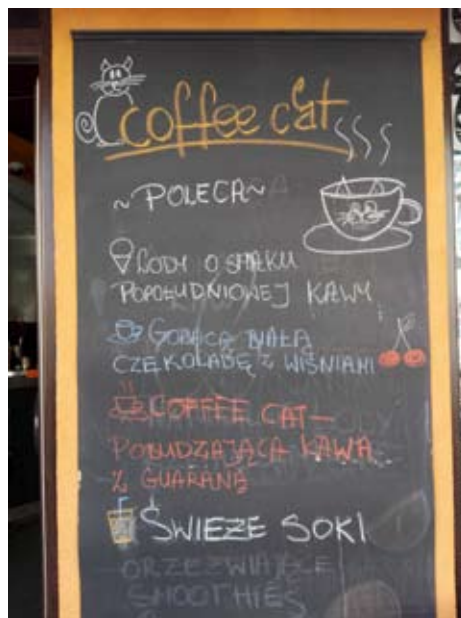 coffee cat
~POLECA~
LODY O SMAKU
POPOŁUDNIOWEJ KAWY
GORĄCĄ BIAŁĄ
CZEKOLADĘ Z WIŚNIAMI
COFFEE CAT-
POBUDZAJĄCA KAWA
Z GUARANĄ
ŚWIEŻE SOKI
ORZEŹWIAJĄCE
SMOOTHIES